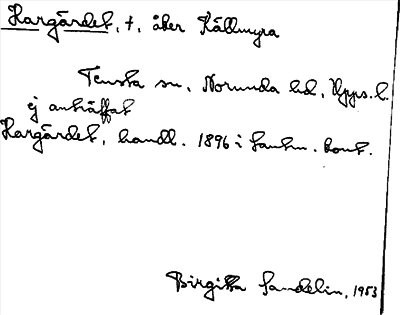 Hargärdet, t, åker Källmyra
Tensta sn, Norunda hd, Upps. l.
ej anträffat
Hargärdet, handl. 1896 i Lantm. kont.
Birgitta Sandelin, 1953